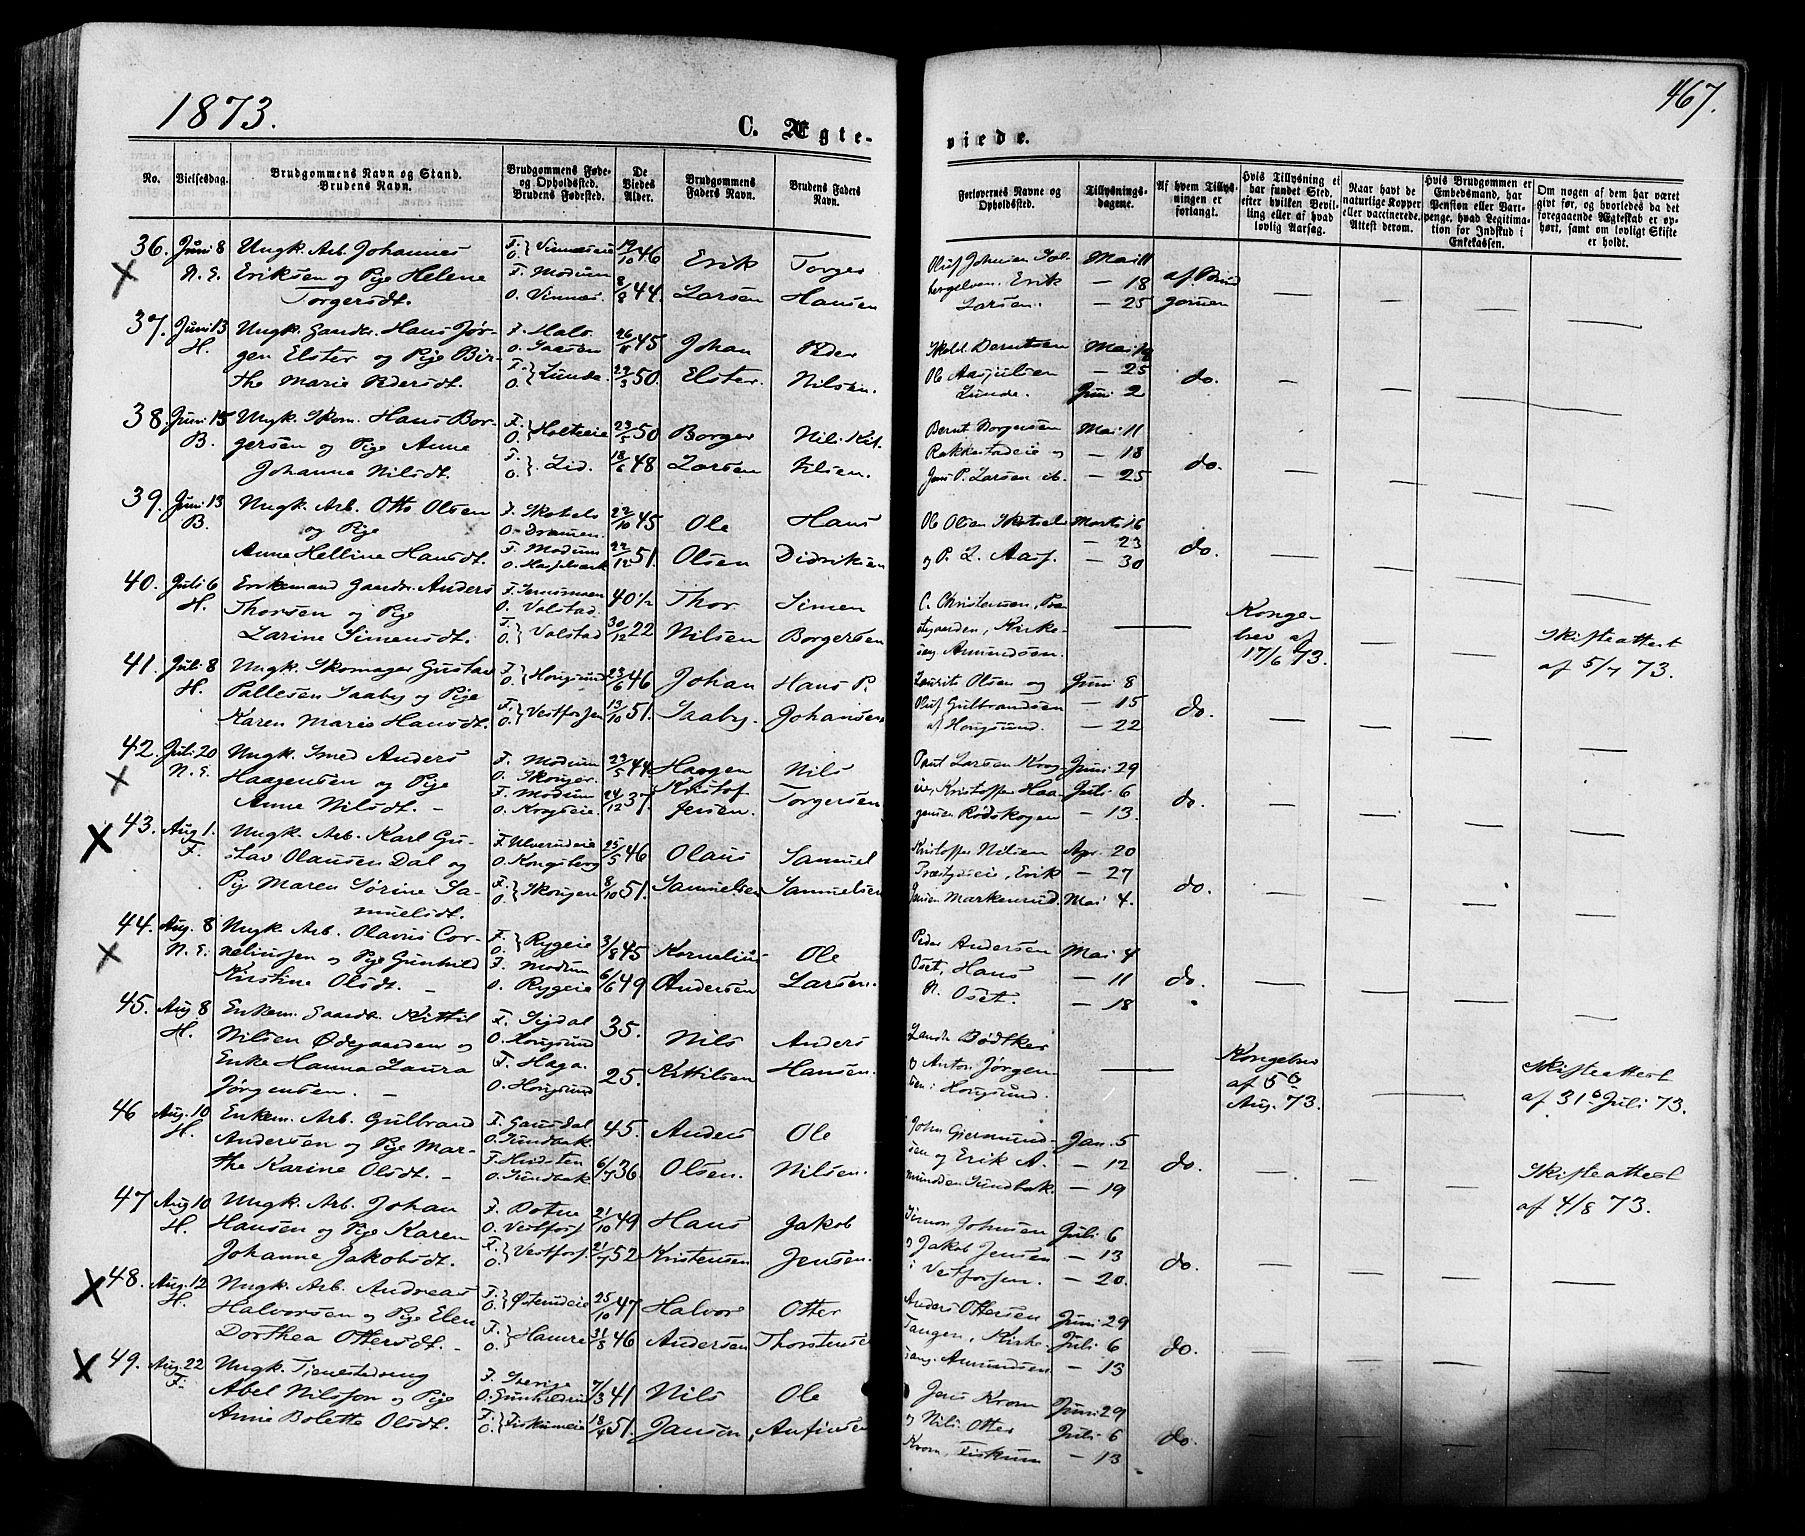 1873.
467.
C. Ægte-
viede.
No.
Vielsesdag.
Brudgommens Navn og Stand.
Brudens Navn.
Brudgommens Føde-
og Opholdssted.
Brudens Fødested.
De
Viedes
Alder.
Brudgommens
Faders Navn.
Brudens Faders
Navn.
Forlovernes Navne og
Opholdssted.
Tillysnings-
dagene.
Af hvem Tillys-
ningen er
forlangt.
Hvis Tillysning ei
har fundet Sted,
efter hvilken Bevil-
ling eller af hvad
lovlig Aarsag.
Naar havt de
naturlige Kopper
eller vaccinerede.
Attest derom.
Hvis Brudgommen er
Embedsmand, har
Pension eller Vart-
penge, hvad Legitima-
tion for Indskud i
Enkekassen.
Om nogen af dem har været
gift før, og hvorledes da det
foregaaende Ægteskab er op-
hørt, samt om lovligt Skifte
er holdt.
36. Juni 8 Ungk. Arb. Johannes F. 19/10 46 Erik Torger Mai 11
N. E. Eriksen og Pige Helene F. Modum Erik — 18 af Brud
Torgersdt. O. 8/8 44. Larsen Hansen Larsen. — 25 gommen
37. Juni 13 Ungk. Gaardbr. Hans Jør- 45 Johan Peder Berntsen Mai
H. gen Elster og Pige Bir- Lunde Ole Aasjulsen — 25 do.
the Marie Pedersdt. 50. Elster. Nilsen. Lunde. Juni 2
38. Juni 15 Ungk. Skom. Hans Bor- F. Holteie 23/5 50 Borger Bernt Borgersen Mai 11
B. gersen og Pige Anne F. og — 18 do.
Johanne Nilsdt. O. Lid. 18/6 48 Larsen Jens P. Larsen ib. — 25
39. Juni 13 Ungk. Arb. Otto Olsen F. 22/10 45 Ole Hans Ole Olsen Marts 16
B. og Pige O. Dramen. — 23 do.
Anne Helline Hansdt. F. Modum 22/12 51. Olsen Didriksen og P. L. Aas — 30
40. Juli 6 Enkemand Gaardbr. Anders F. 40 1/2 Thor Simen C. Christensen, Præ- Konge-
H. Thorsen og Pige O. Valstad. stegaarden, Kirke- brev af Skifteattest
Larine Simensdt. Valstad 30/12 22 Nilsen Borgersen Amundsen. 17/6 73. af 5/7 73.
41. Juli 8 Ungk. Skomager Gustav Hougsund 23/6 46 Johan Hans P. Laurits Olsen og Juni 8
H. Pallesen Saaby og Pige Oluf Gulbrandsen — 15 do.
Karen Marie Hansdt. Vestfossen 13/10 51. Saaby. Johansen af Hougsund. — 22
42. Juli 20 Ungk. Smed Anders F. Modum 44 Haagen Nils Paul Larsen Juni 29
N. E. Haagensen og Pige F. Modum Kristof Kristoffer Haa- Juli 6 do.
Anne Nilsdt. — O. 24/12 37. Jensen. Torgersen gensen Rødskogen — 13.
43. Aug. 1. Ungk. Arb. Karl Gu- F. Ulverudeie 25/5 46 Olaus Samuel Kristoffer Nilsen Apr. 20
F. stav Olaussen Dal og O. Kongsberg Præstgdseie, Erik — 27 do.
Pige Maren Sørine Sa- F. Skougen 8/10 51. Samuelsen Samuelsen Jensen Markerud. Mai 4.
muelsdt.
44. Aug. 8 Ungk. Arb. Olavus Cor- F. Rygeie 3/8 45 Kornelius Ole Peder Andersen Mai 4
N. E. neliussen og Pige Gunhild F. Modum Oset, Hans — 11 do.
Kirstine Olsdt. — O. Rygeie 6/6 49 Andersen Larsen. N. Oset. — 18
45. Aug. 8 Enkem. Gaardbr. Kittil F. Sigdal 35. Nils Anders Bødtker Kongebrev Skifteattest
H. Nilsen Ødegaarden og O. Hougsund og Anton Jørgen- af 5te af 31te Juli 73.
Enke Hanna Laura F. Haga 25. Kittilsen Hansen. sen i Hougsund. Aug. 73.
Jørgensen. — O. Hougsund
46 Aug. 10 Enkem. Arb. Gulbrand F. Gausdal 45. Anders Ole John Gjermund- Jan. 5
H. Andersen og Pige Mar- O. Sundbak. sen og Erik A- — 12 do. Skifteattest
the Karine Olsdt. — O. Sundbak 36 Olsen. Nilsen. mundsen Sundbak. — 19 af 4/8 73.
47 Aug 10 Ungk. Arb. Johan F. 21/10 49 Hans Jakob Simon Johnsen Juli 6
H. Hansen og Pige Karen O. Vestfoss og Jakob Jensen — 13 do.
Johanne Jakobsdt. Vestfoss. 21/7 52 Kristensen Jensen. i Vestfossen. — 20.
48. Aug. 12 Ungk. Arb. Andreas 25/10 47 Halvor Otter Anders Ottersen Juni 29
H. Halvorsen og Pige Elen Tangen, Kirke- Juli 6 do.
Dorthea Ottersdt. — Hamre 31/8 46 Andersen Thorstensen Amundsen — 13
49. Aug. 22 Ungk. Tjenestedreng F. Sverige 7/3 41 Nils Ole Jens Krom Juni 29
F. Abel Nilsson og Pige og Nils Otter Juli 6 do.
Anne Bolette Olsdt. Fiskumeie 18/4 51. Jansen, Anfinsen Krom, Fiskum — 13